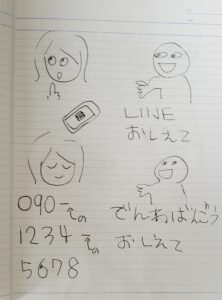 LINE
おしえて
でんわばんごう
おしえて
090-の
1234-の
5678